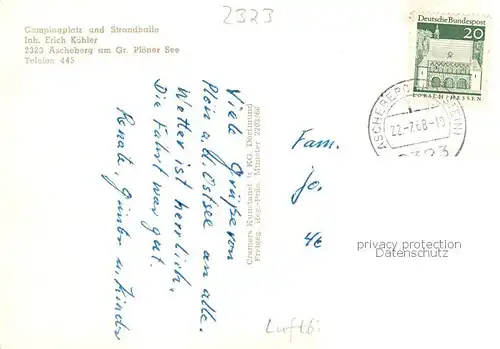 2323
Campingplatz und Strandhalle
Inh. Erich Köhler
2323 Ascheberg am Gr. Plöner See
Telefon 445
Viele Grüße von
Plön a. d. Ostsee an alle.
Wetter ist herrlich.
Die Fahrt war gut.
Renate, Günter u. Kinder
Cramers Kunstanstalt KG, Dortmund
Freigeg. Reg.-Präs. Münster
Fam.
Jo.
Deutsche Bundespost
20
LORSCH/HESSEN
ASCHEBERG
22-7.68-19
2323
privacy protection
Datenschutz
Luftbi